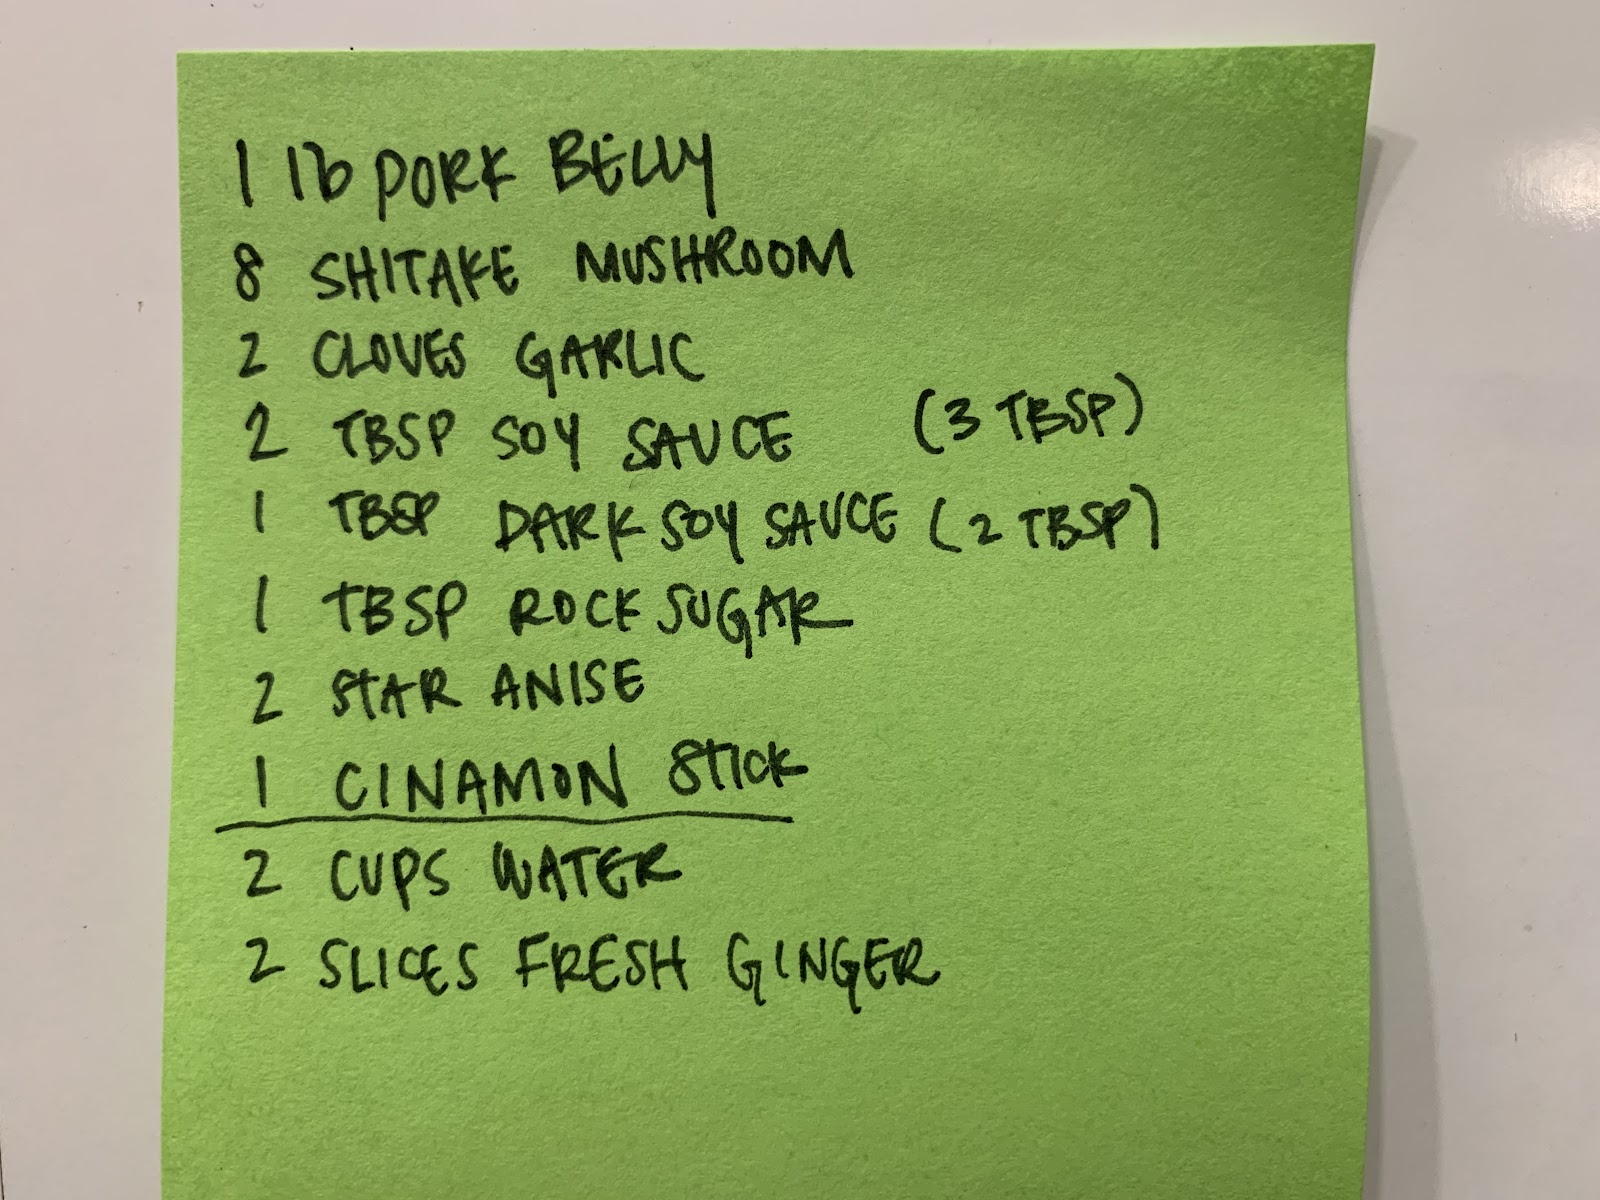 1 lb PORK BELLY
8 SHITAKE MUSHROOM
2 CLOVES GARLIC
2 TBSP SOY SAUCE (3 TBSP)
1 TBSP DARK SOY SAUCE (2 TBSP)
1 TBSP ROCK SUGAR
2 STAR ANISE
1 CINAMON STICK
2 CUPS WATER
2 SLICES FRESH GINGER